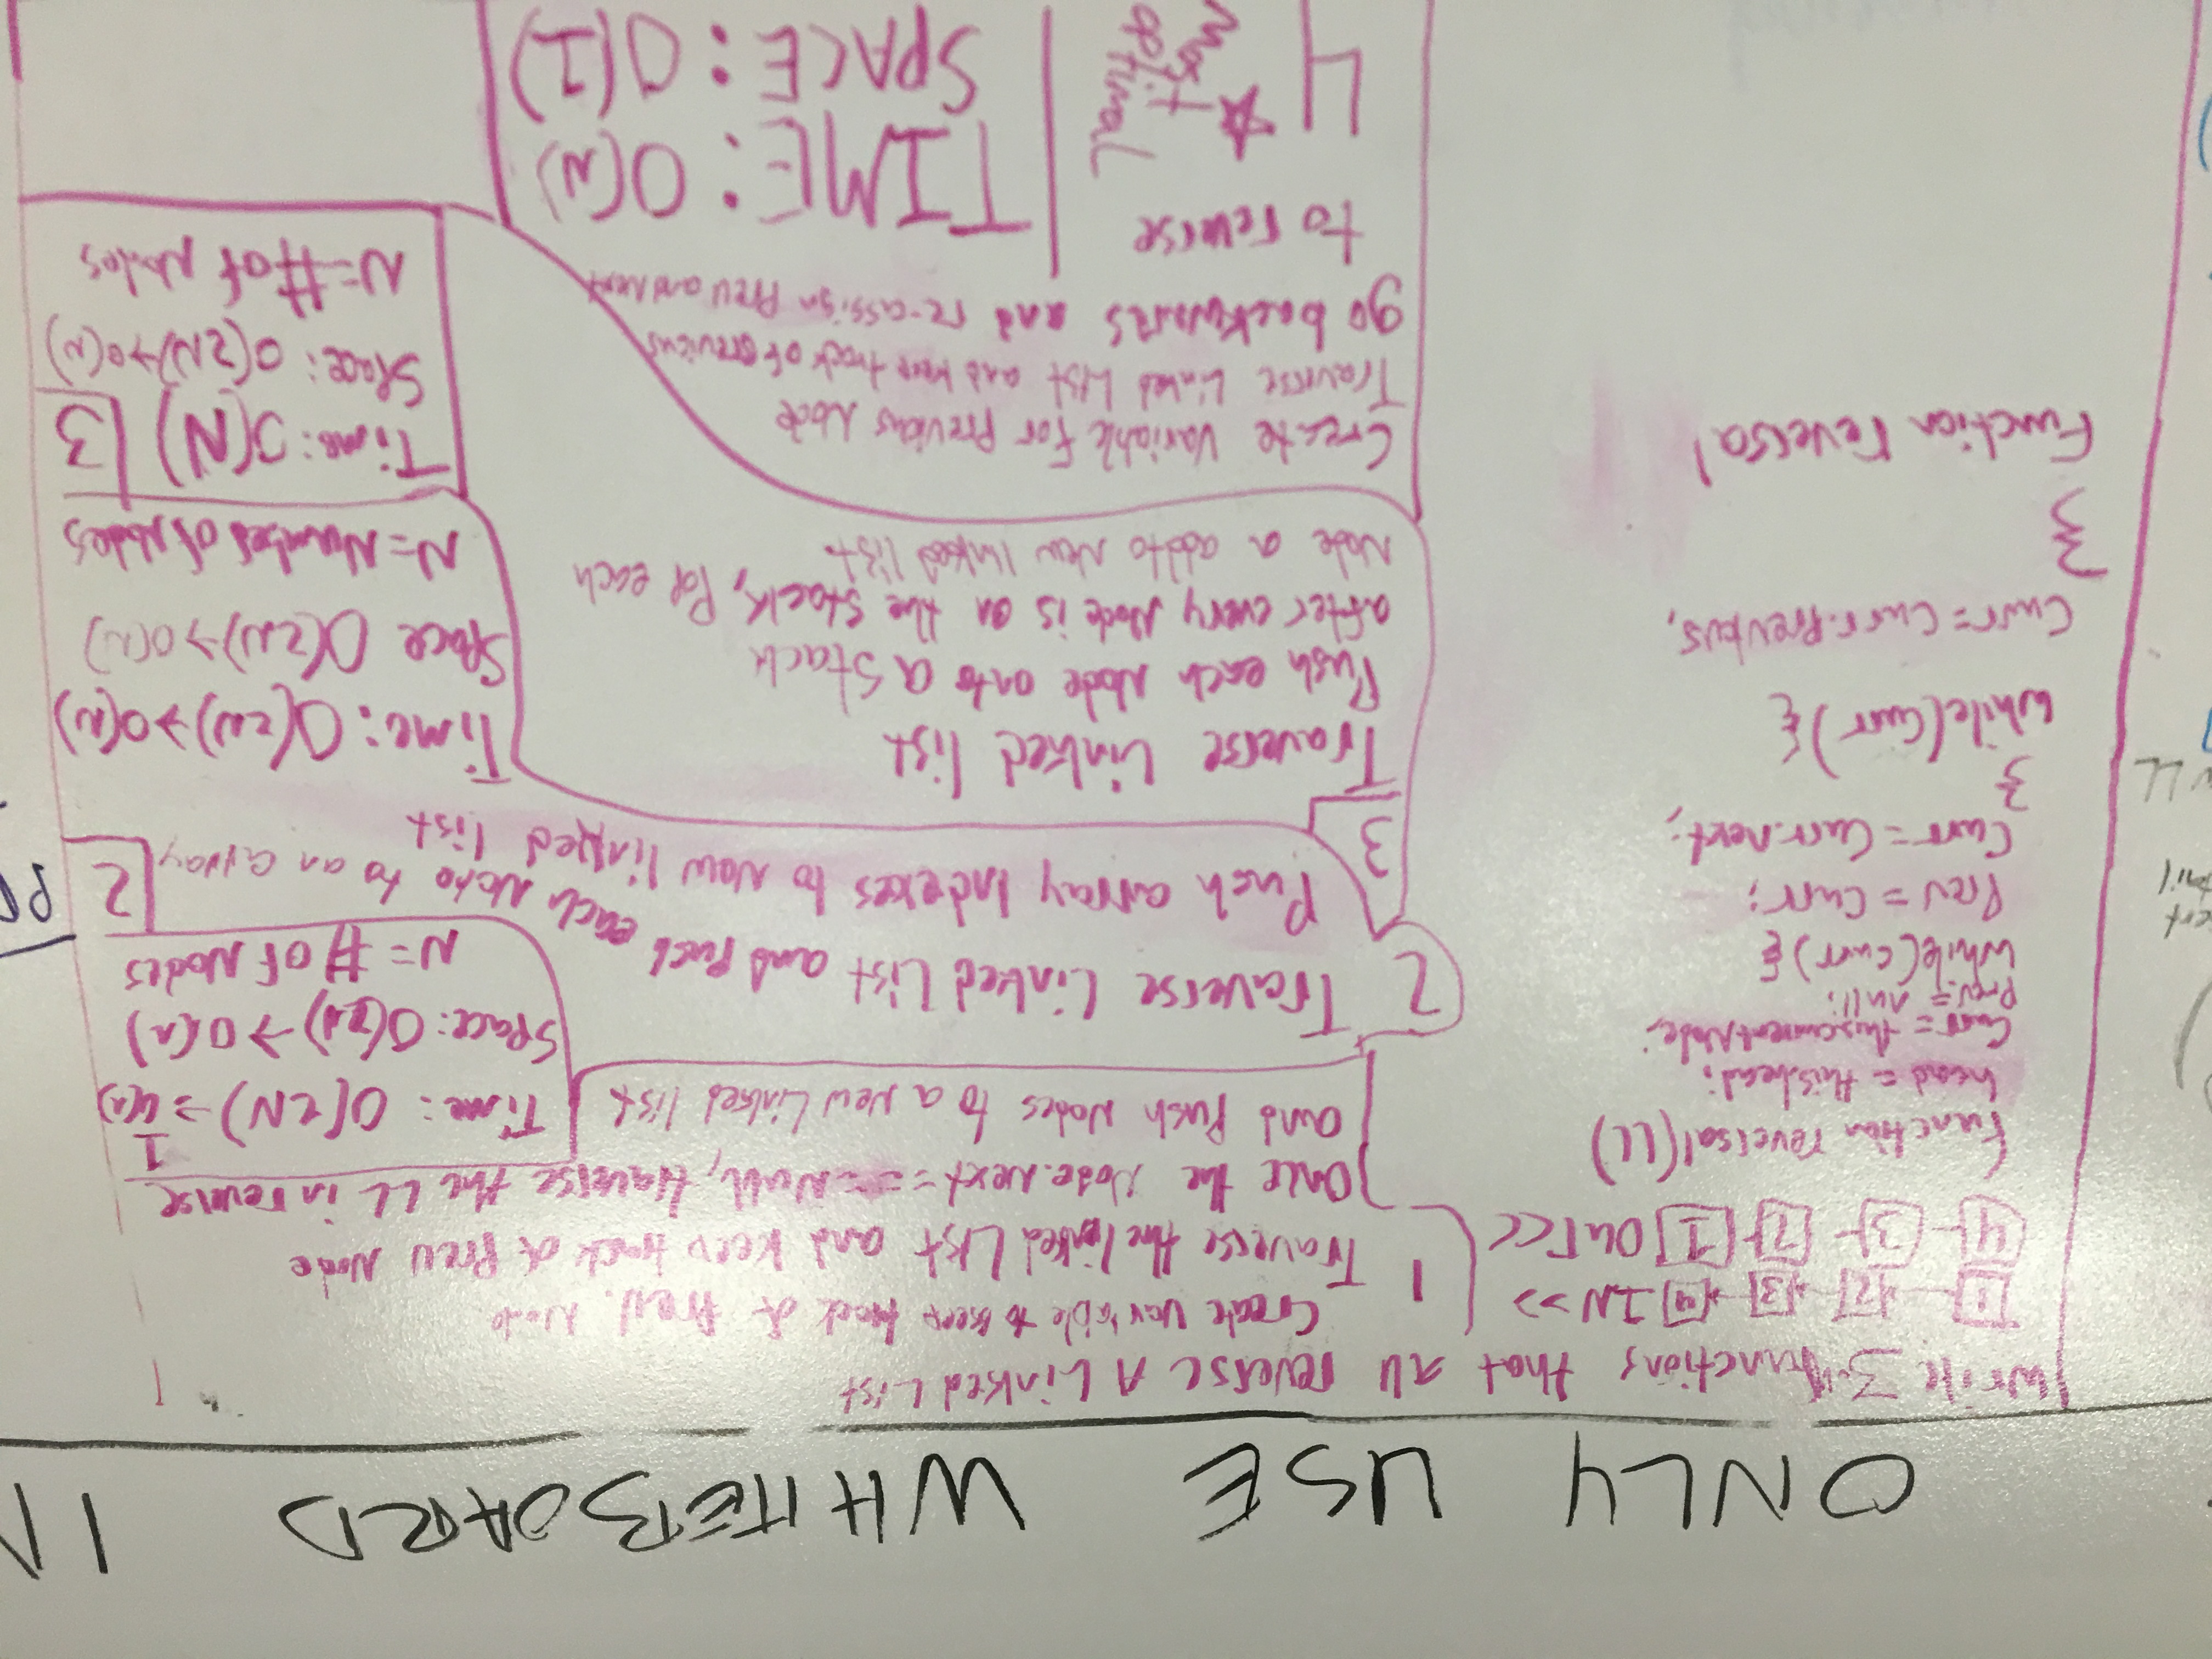 ONLY USE WHITEBOARD IN
Write 3 functions that all reverse A Linked List
1 2 3 4 IN >>
4 3 2 1 OUT <<
function reversal(LL)
head = this.head;
Curr = this.currentNode;
Prev = null;
while(curr){
Prev = Curr;
Curr = Curr.next;
}
while(Curr){
Curr = Curr.Previous,
}
}
Function reversal
1
Create variable to keep track of Prev. Node
Traverse the linked List and keep track of Prev Node
Once the Node.Next === Null, traverse the LL in reverse
and Push Nodes to a New Linked list
1
Time: O(2N) → O(n)
Space: O(2N) → O(n)
N = # of Nodes
2
Traverse Linked List and Push each Node to an array
Push array Indexes to New linked list
2
Time: O(2N) → O(N)
Space O(2N) → O(N)
N = Number of Nodes
3
Traverse Linked list
Push each Node onto a Stack
after every Node is on the stack, Pop each
Node a add to New linked list.
3
Time: O(N)
Space: O(2N) → O(N)
N = # of Nodes
Create Variable For Previous Node
Traverse Linked List and keep track of previous
go backwards and re-assign Prev and Next
to reverse
4
Most optimal
TIME: O(N)
SPACE: O(1)
ert
tail
LL